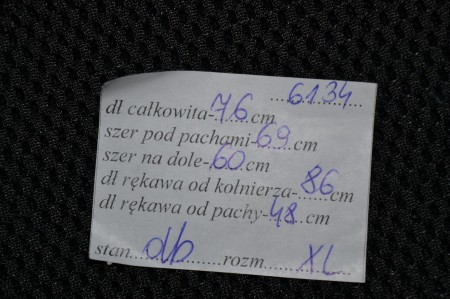 ...6134...
dł całkowita-.76.cm
szer pod pachami-69.cm
szer na dole-60.cm
dł rękawa od kołnierza-.86.cm
dł rękawa od pachy-.48.cm
stan...db...rozm...XL...